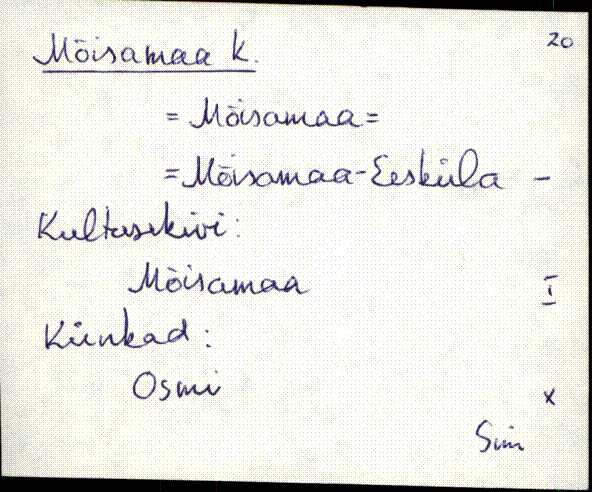 Mõisamaa k. 20
= Mõisamaa =
= Mõisamaa-Eesküla -
Kultusekivi:
Mõisamaa I
Künkad:
Osmi x
Sim